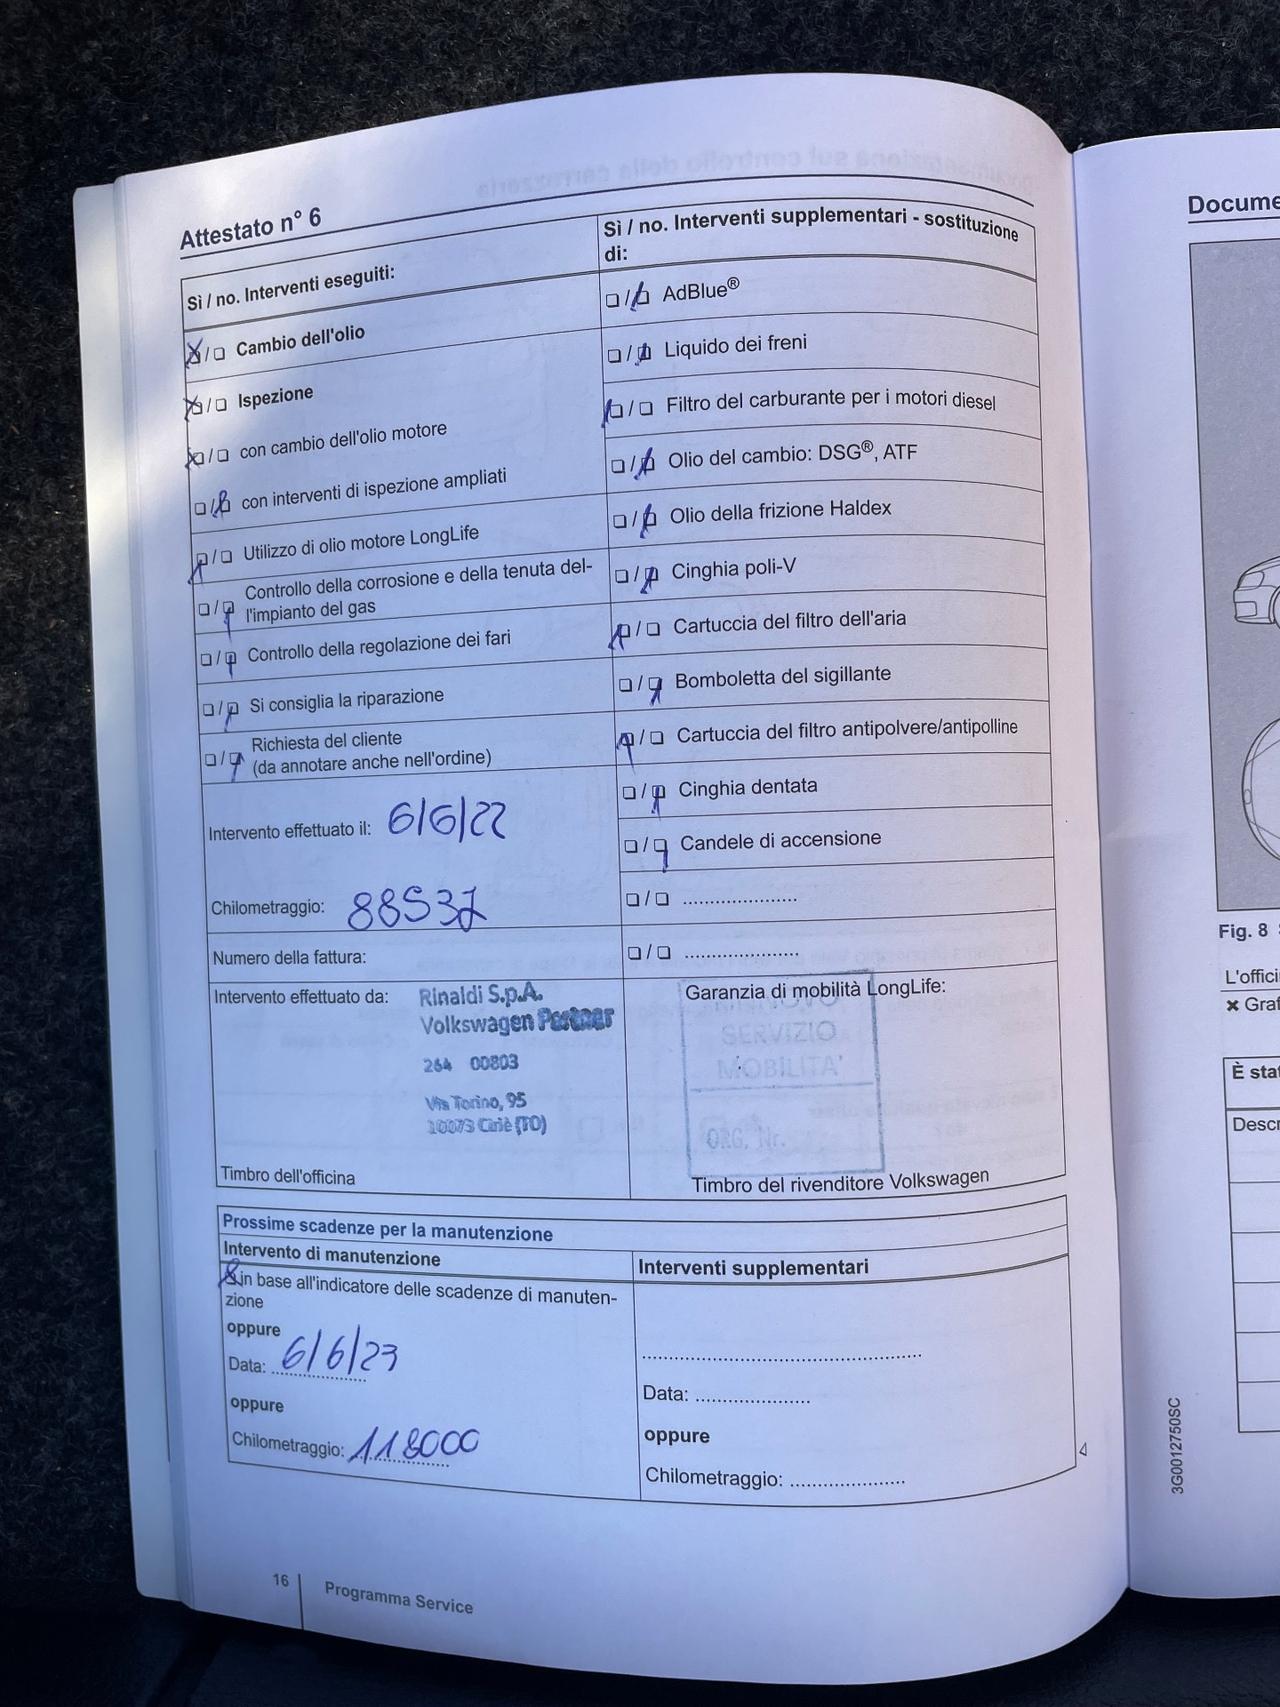 Attestato n° 6
Sì / no. Interventi eseguiti:
☒/❑ Cambio dell'olio
☒/❑ Ispezione
☒/❑ con cambio dell'olio motore
❑/☒ con interventi di ispezione ampliati
☒/❑ Utilizzo di olio motore LongLife
❑/☒ Controllo della corrosione e della tenuta del-
l'impianto del gas
❑/☒ Controllo della regolazione dei fari
❑/☒ Si consiglia la riparazione
❑/☒ Richiesta del cliente
(da annotare anche nell'ordine)
Intervento effettuato il: 6/6/22
Chilometraggio: 88537
Numero della fattura:
Intervento effettuato da:
Rinaldi S.p.A.
Volkswagen Partner
264 00803
Via Torino, 95
10073 Ciriè (TO)
Timbro dell'officina
Sì / no. Interventi supplementari - sostituzione
di:
❑/☒ AdBlue®
❑/☒ Liquido dei freni
☒/❑ Filtro del carburante per i motori diesel
❑/☒ Olio del cambio: DSG®, ATF
❑/☒ Olio della frizione Haldex
❑/☒ Cinghia poli-V
☒/❑ Cartuccia del filtro dell'aria
❑/☒ Bomboletta del sigillante
☒/❑ Cartuccia del filtro antipolvere/antipolline
❑/☒ Cinghia dentata
❑/☒ Candele di accensione
❑/❑ .....................
❑/❑ .....................
Garanzia di mobilità LongLife:
SERVIZIO
MOBILITA'
ORG. Nr.
Timbro del rivenditore Volkswagen
Prossime scadenze per la manutenzione
Intervento di manutenzione
☒ in base all'indicatore delle scadenze di manuten-
zione
oppure
Data: 6/6/23
oppure
Chilometraggio: 118000
Interventi supplementari
Data: .....................
oppure
Chilometraggio: .....................
16 Programma Service
3G0012750SC
Fig. 8